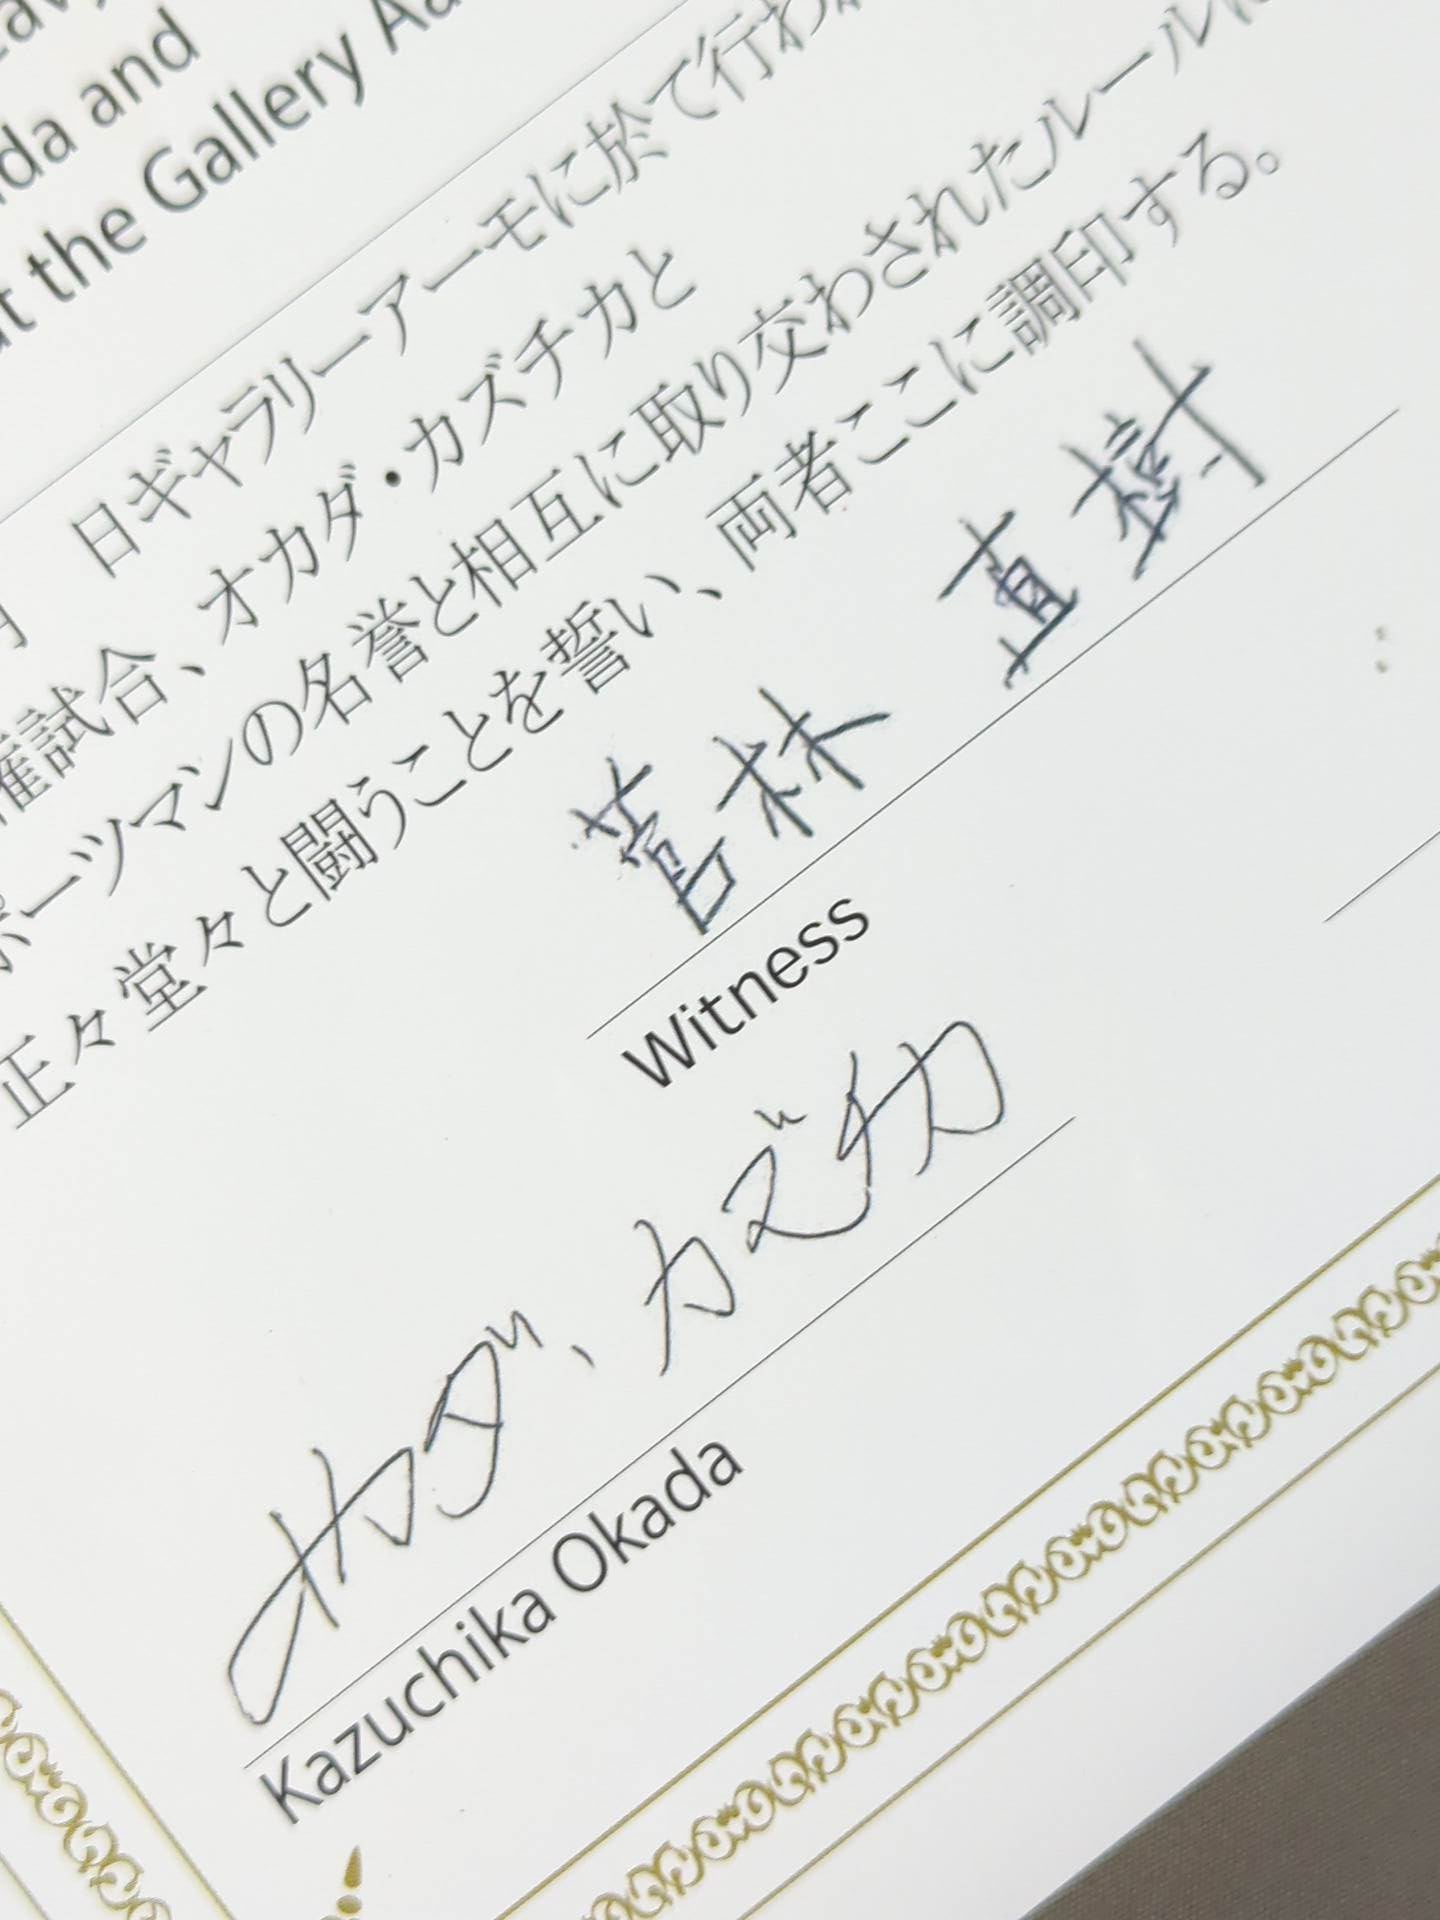 da and
at the Gallery
日ギャラリーアーモに於て行わ
試合、オカダ・カズチカと
ポーツマンの名誉と相互に取り交わされたルールに
正々堂々と闘うことを誓い、両者ここに調印する。
菅林 直樹
Witness
オカダ、カズチカ
Kazuchika Okada